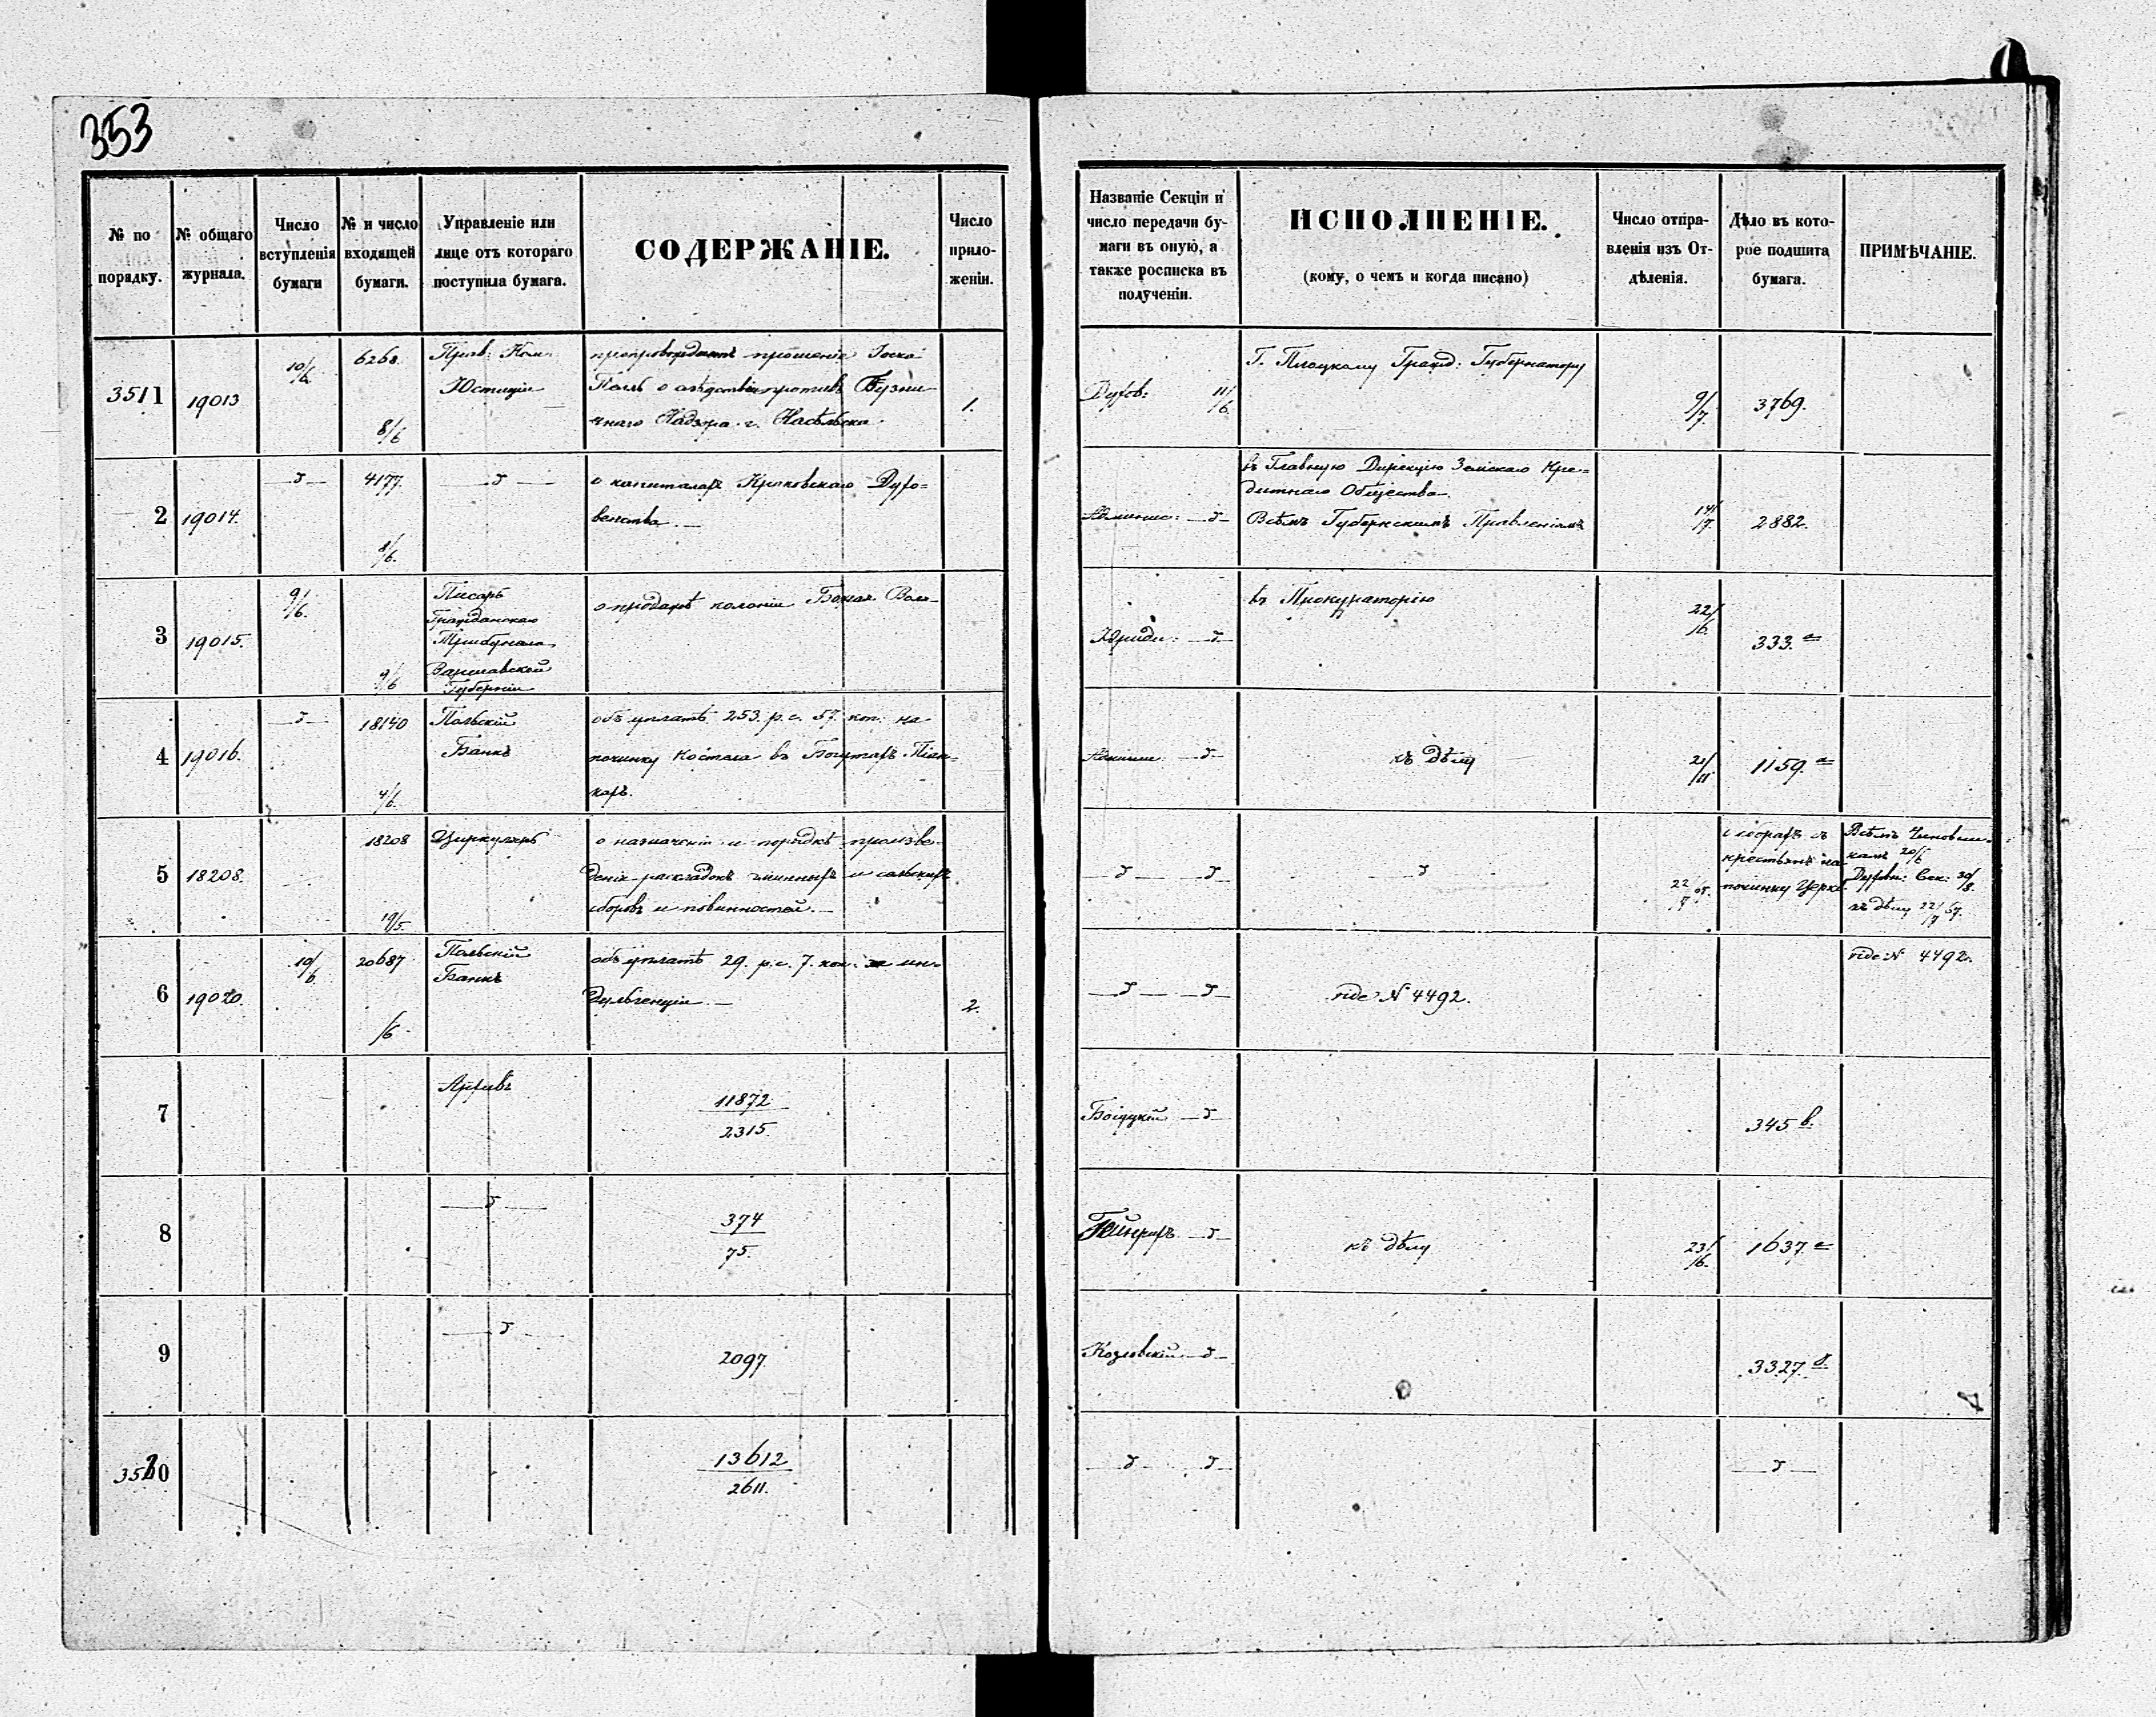 353
№ по порядку.
№ общаго журнала.
Число вступленія бумаги
№ и число входящей бумаги.
Управленіе или лице отъ котораго поступила бумага.
СОДЕРЖАНІЕ.
Число приложеніи.
Названіе Секціи и число передачи бумаги въ оную, а также росписка въ полученіи.
ИСПОЛНЕНІЕ.
(кому, о чемъ и когда писано)
Число отправленія изъ Отдѣленія.
Дѣло въ которое подшита бумага.
ПРИМѢЧАНІЕ.
3511
19013
10/6
6268.
8/6
Прав: Ком:
Юстиціи
препровождаетъ прошеніе
о слѣдствіи противъ
Надзора г. Насѣльска.
1.
Духов: 11/6.
Г. Плоцкому Гражд: Губернатору
9/7.
3769.
2
19014.
4177.
8/6.
о капиталахъ Краковскаго Духо=
венства.
Админис:
въ Главную Дирекцію Земскаго Кре=
дитнаго Общества.
Всѣмъ Губернскимъ Правленіямъ
14/7.
2882.
3
19015.
9/6.
9/6
Писарь
Гражданскаго
Трибунала
Варшавской
Губерніи
о продажѣ колоніи Божая Воля
Юриди:
въ Прокураторію
22/6.
333. а
4
19016.
18140
4/6.
Польскій
Банкъ
объ уплатѣ 253. р. с. 57. коп. на
починку костела въ
Админи:
къ дѣлу
21/11.
1159. а
5
18208.
18208
19/5.
Циркуляръ
о назначеніи и порядкѣ произве=
денія раскладокъ гминныхъ и сельскихъ
сборовъ и повинностей.
о сборахъ съ
крестьянъ на
починку Церкв.
Всѣмъ Чиновни=
камъ 20/6
Духовн: Сек: 30/8.
къ дѣлу 22/7 67.
6
19020.
10/6.
20687
/6
Польскій
Банкъ
объ уплатѣ 29. р. с. 7. коп. за ин=
дульгенціи.
2.
vide N 4492.
vide N 4492.
7
Архивъ
11872
2315.
345 в.
8
374
75.
къ дѣлу
23/6.
1637. а
9
2097
Козловскій
3327. б.
3520
13612
2611.